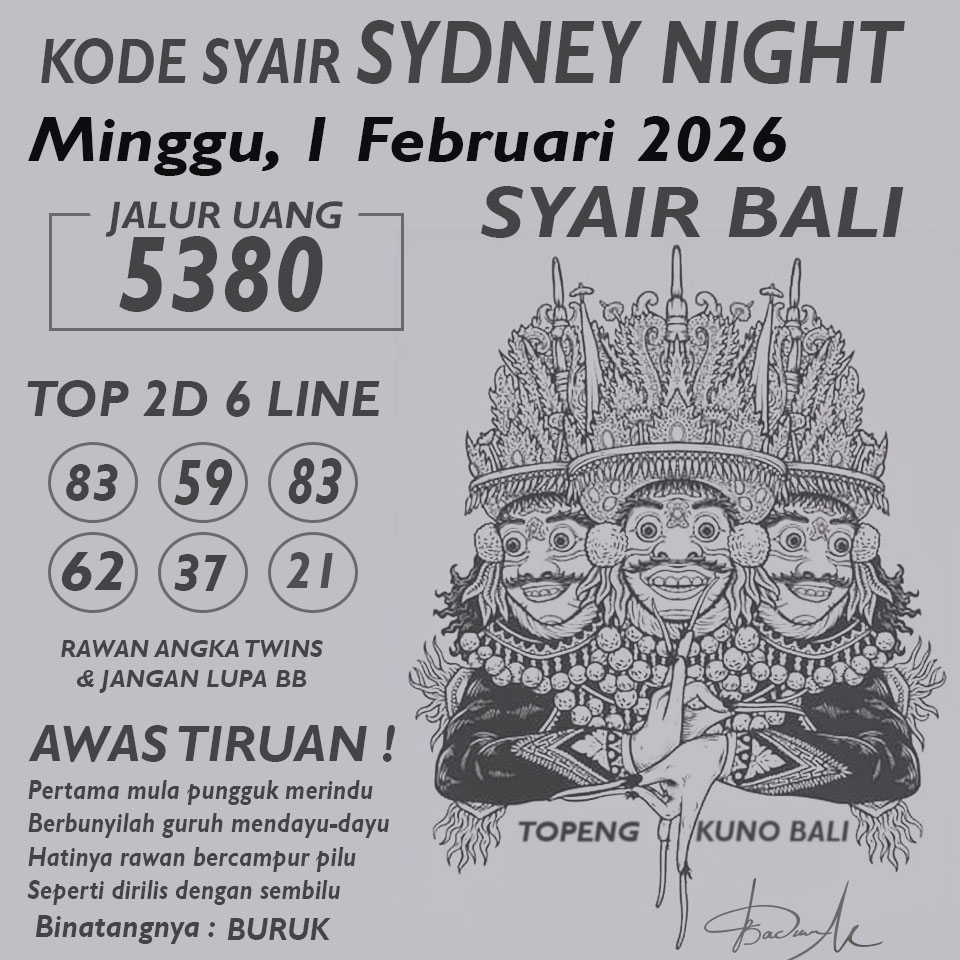 KODE SYAIR SYDNEY NIGHT
Minggu, 1 Februari 2026
SYAIR BALI
JALUR UANG
5380
TOP 2D 6 LINE
83 59 83
62 37 21
RAWAN ANGKA TWINS
& JANGAN LUPA BB
AWAS TIRUAN !
Pertama mula pungguk merindu
Berbunyilah guruh mendayu-dayu
Hatinya rawan bercampur pilu
Seperti dirilis dengan sembilu
Binatangnya : BURUK
TOPENG KUNO BALI